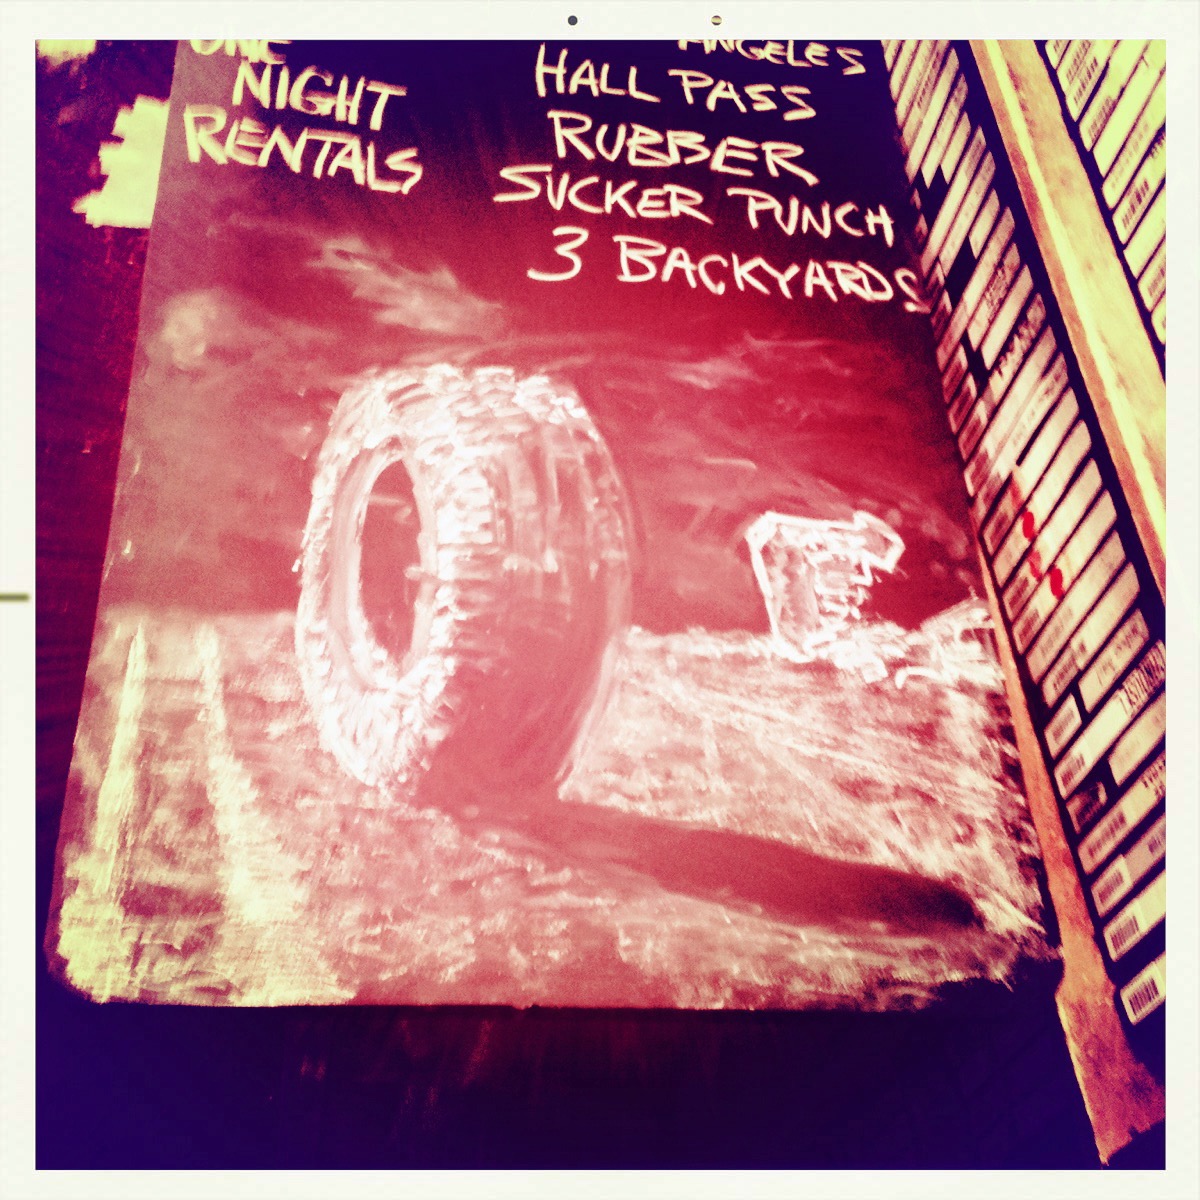 ONE
NIGHT
RENTALS
ANGELES
HALL PASS
RUBBER
SUCKER PUNCH
3 BACKYARDS